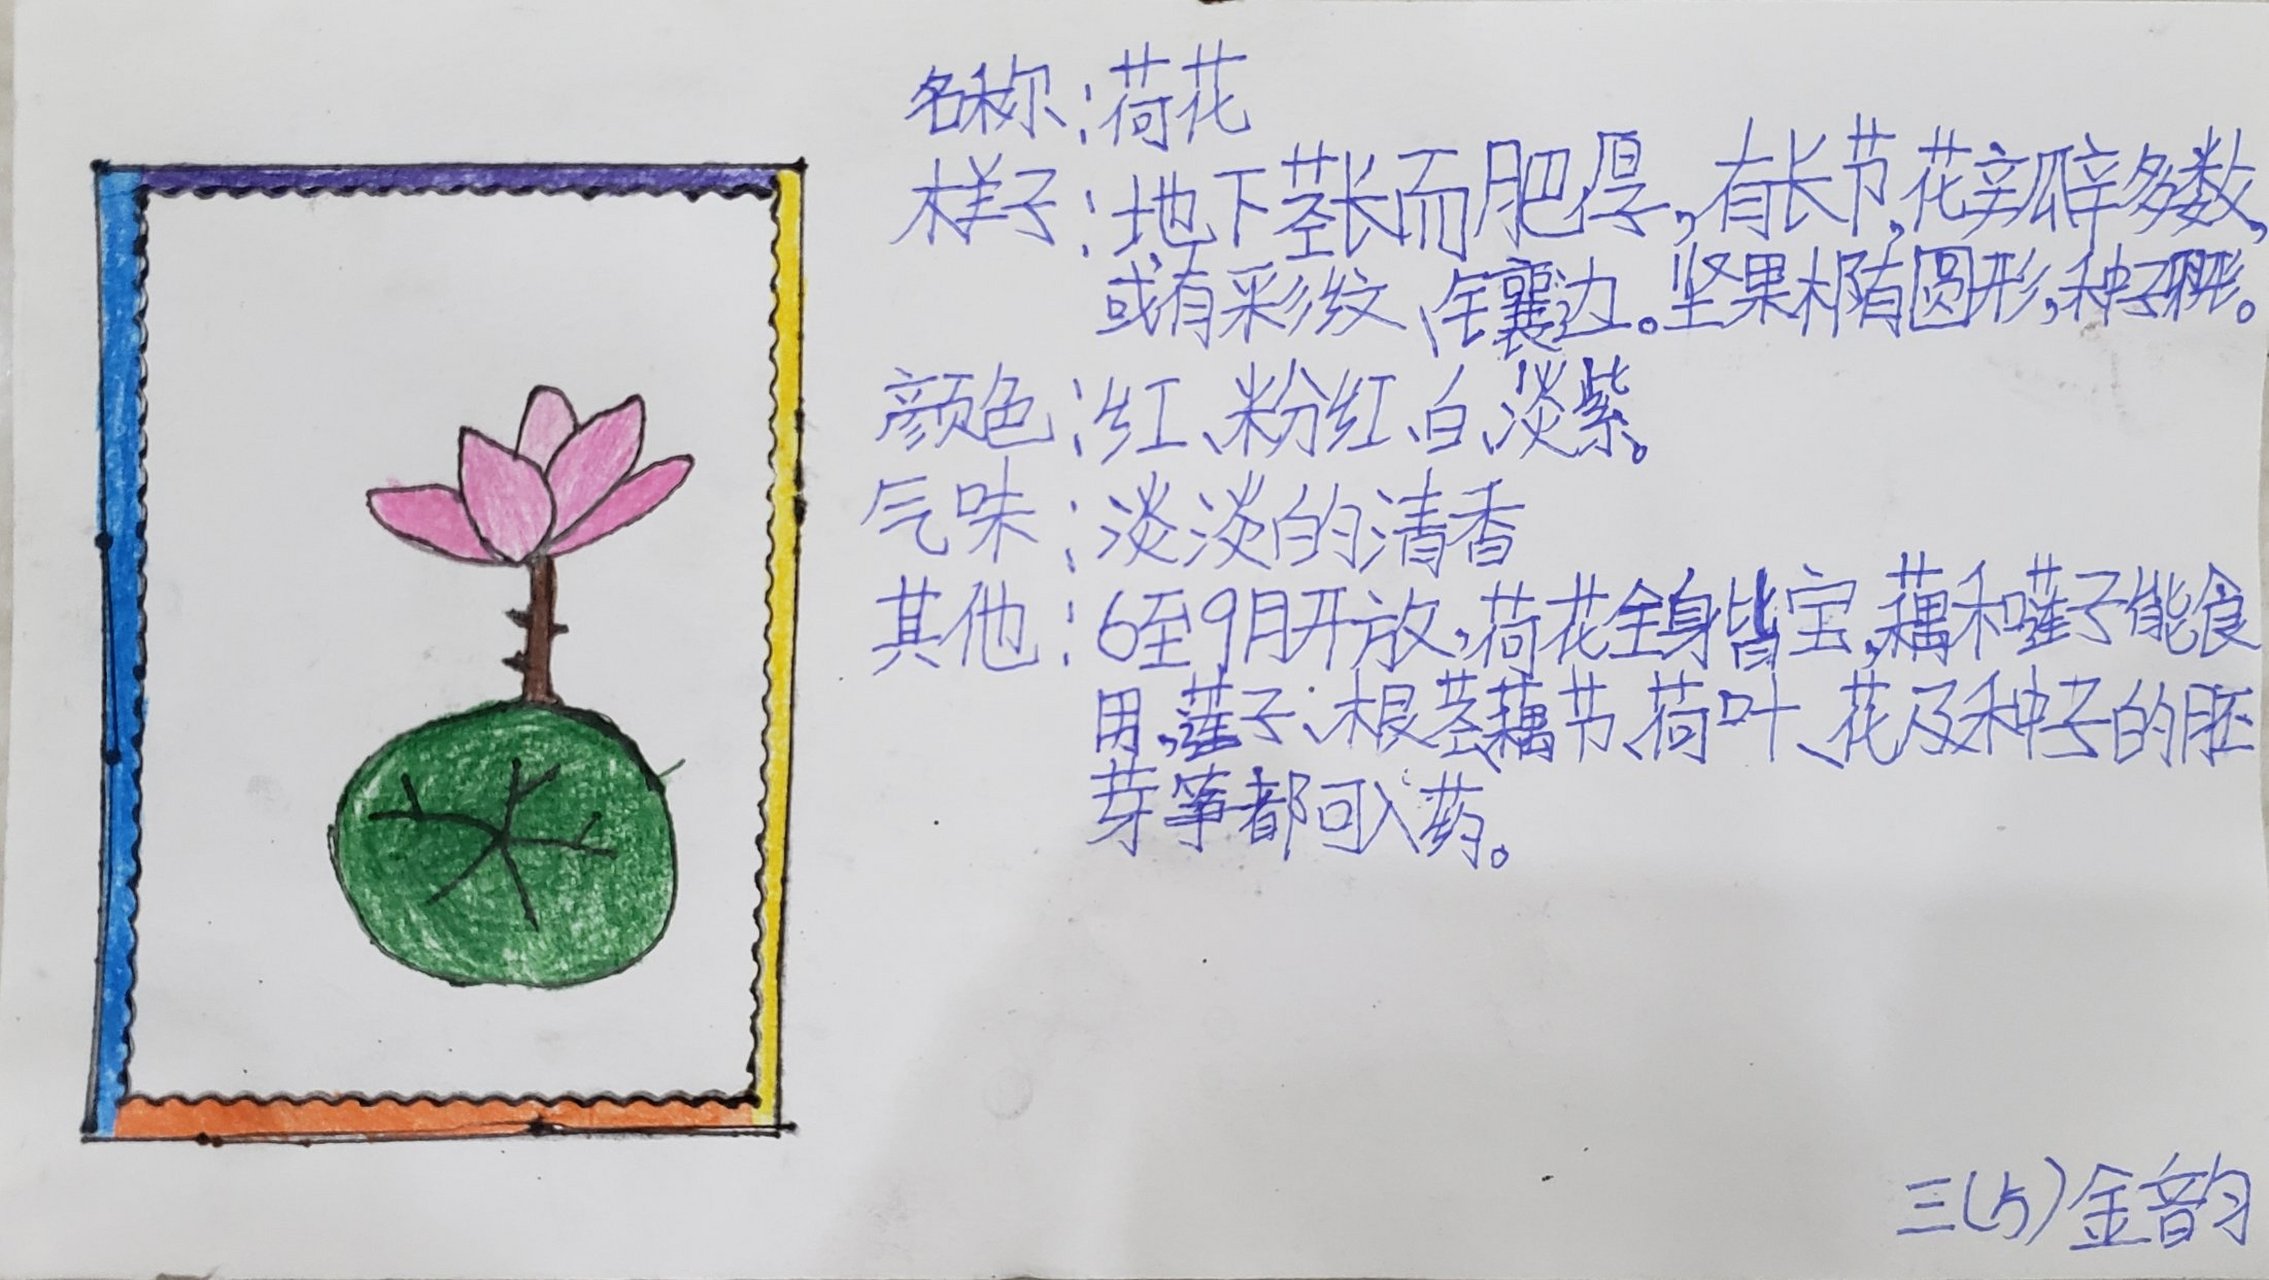 名称:荷花
样子:地下茎长而肥厚,有长节,花瓣多数,
或有彩纹、镶边。坚果椭圆形,种子卵形。
颜色:红、粉红、白、淡紫。
气味:淡淡的清香
其他:6至9月开放,荷花全身皆宝,藕和莲子能食
用,莲子、根茎、藕节、荷叶、花及种子的胚
芽等都可入药。
三(5)金韵